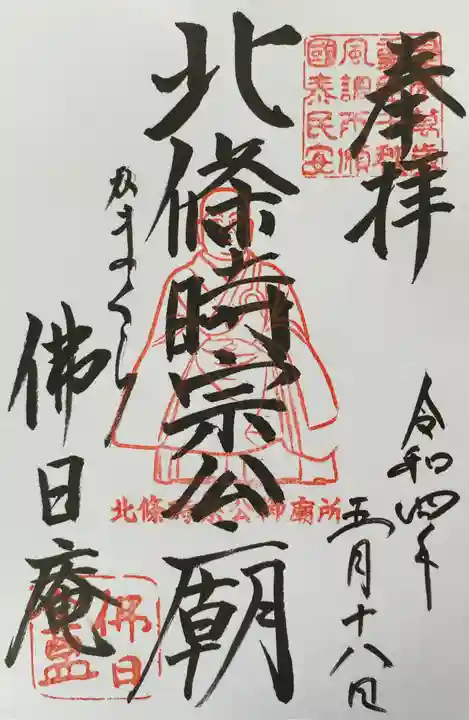 奉拝
風調雨順
國泰民安
令和四年
五月十八日
北條時宗公廟
北條時宗公御廟所
かまくら
佛日庵
佛日